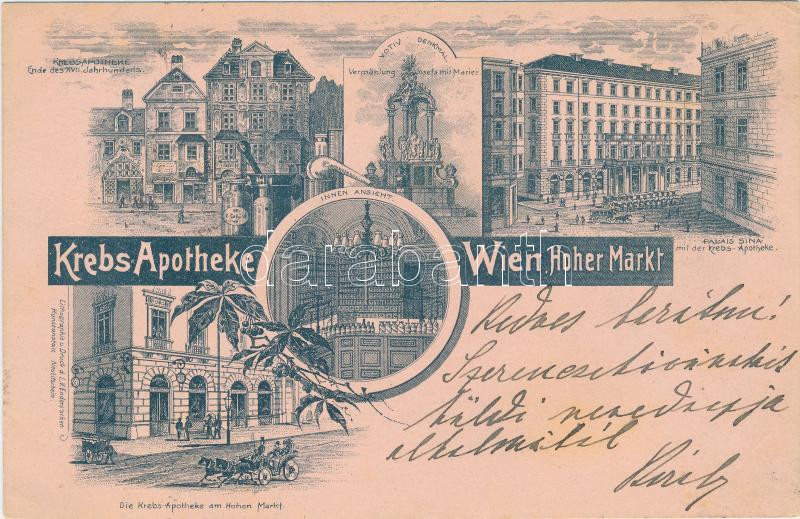 KREBSAPOTHEKE
Ende des XVII. Jahrhunderts.
VOTIV DENKMAL
Vermählung Josefs mit Marien
INNEN ANSICHT.
PALAIS SINA
mit der Krebs-Apotheke.
Krebs-Apotheke
Wien, Hoher Markt
darabanth
Kedves barátom!
Szerencsekivánatait
küldi nevednapja
alkalmából
Károly
Lithographie u. Druck d. L.V. Enders'schen
Kunstanstalt Neutitschein.
Die Krebs-Apotheke am Hohen Markt.